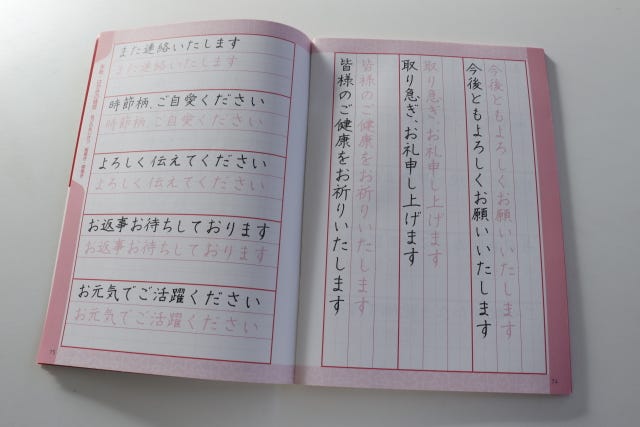 今後ともよろしくお願いいたします
今後ともよろしくお願いいたします
取り急ぎ、お礼申し上げます
取り急ぎ、お礼申し上げます
皆様のご健康をお祈りいたします
皆様のご健康をお祈りいたします
74
また連絡いたします
また連絡いたします
時節柄、ご自愛ください
時節柄、ご自愛ください
よろしく伝えてください
よろしく伝えてください
お返事お待ちしております
お返事お待ちしております
お元気でご活躍ください
お元気でご活躍ください
75